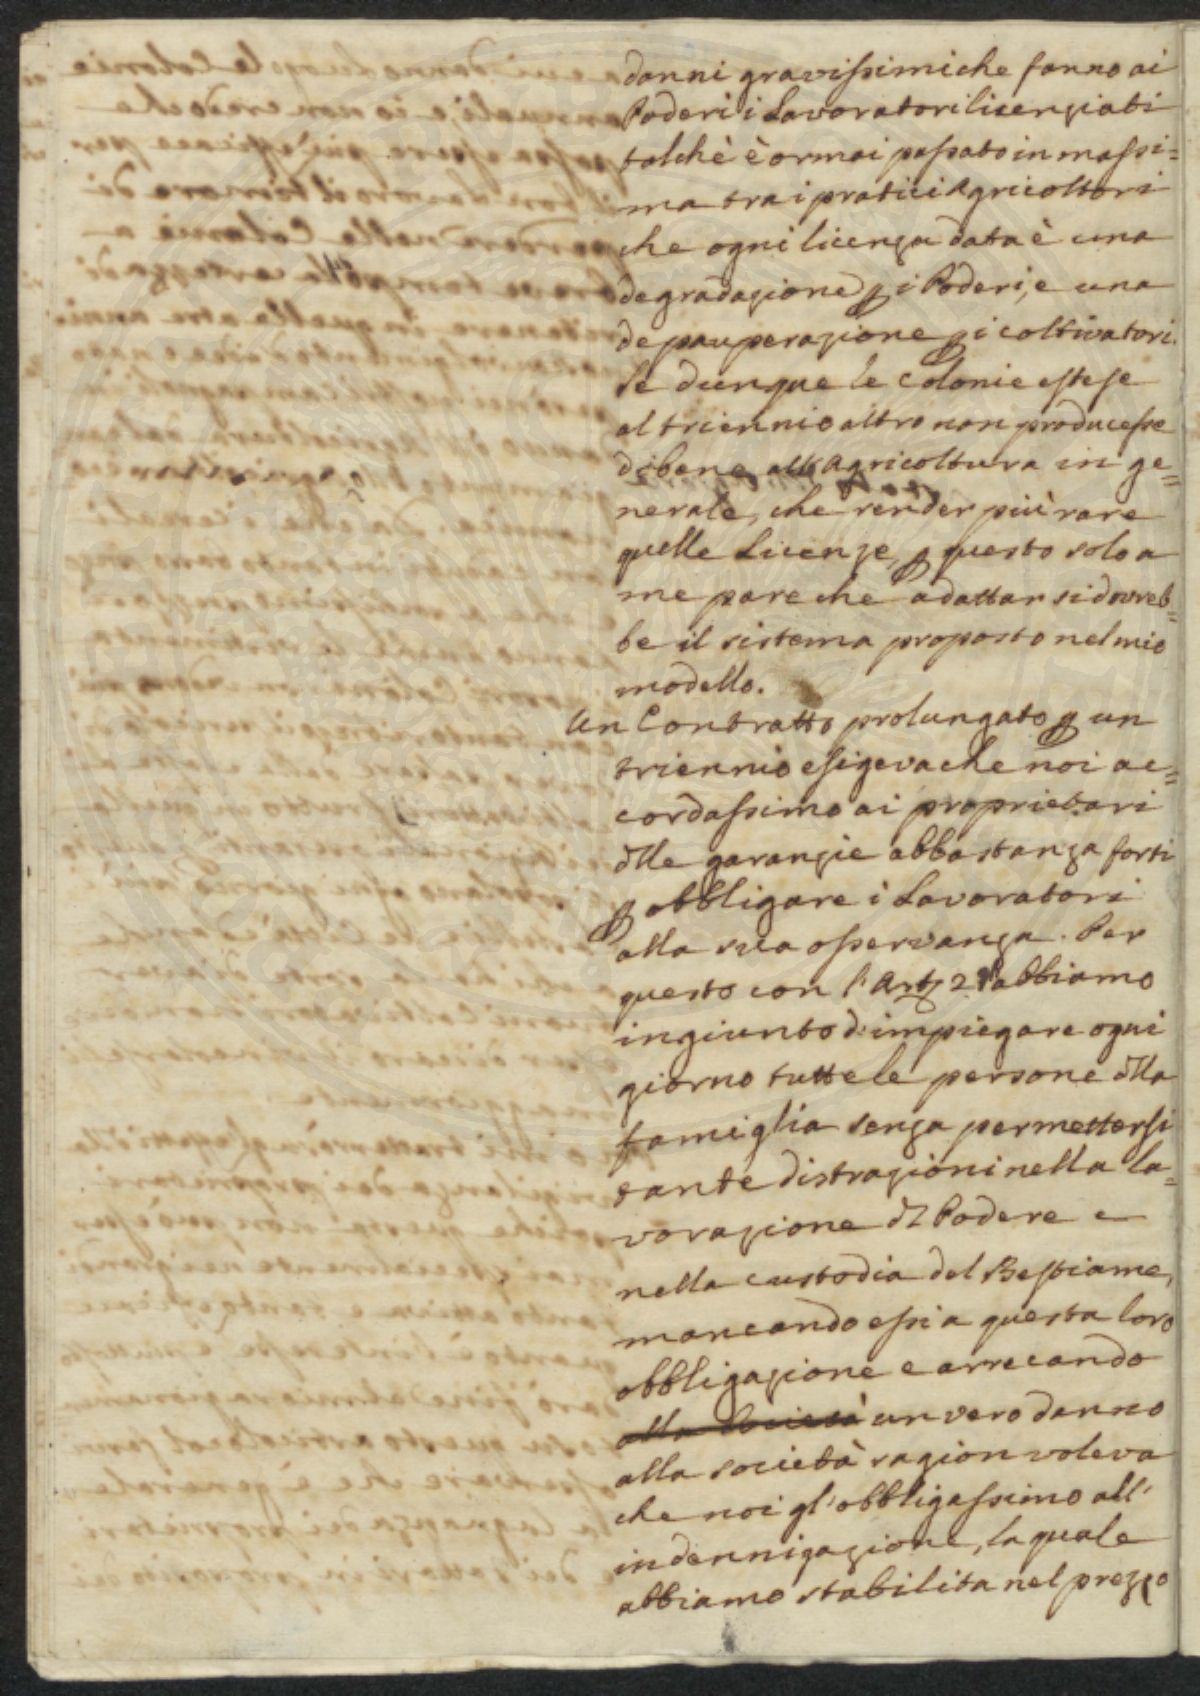 danni gravissimi che fanno ai
Poderi i Lavoratori licenziati
talchè è ormai passato in massi=
ma tra i pratici Agricoltori
che ogni licenza data è una
degradazione p i Poderi, e una
depauperazione p i coltivatori.
Se dunque le colonie estese
al triennio altro non producesse
di bene all'Agricoltura in ge=
nerale, che render più rare
quelle Licenze, p questo solo a
me pare che adattar si dovreb=
be il sistema proposto nel mio
modello.
Un Contratto prolungato p un
triennio esigeva che noi ac=
cordassimo ai proprietari
dlle garanzie abbastanza forti
p obbligare i Lavoratori
alla sua osservanza. Per
questo con l'Art. 2 abbiamo
ingiunto d'impiegare ogni
giorno tutte le persone dlla
famiglia senza permettersi
tante distrazioni nella la=
vorazione dl Podere e
nella custodia del Bestiame,
mancando essi a questa loro
obbligazione e arrecando
alla società un vero danno
alla società ragion voleva
che noi gl'obbligassimo all'
indennizazione, la quale
abbiamo stabilita nel prezzo